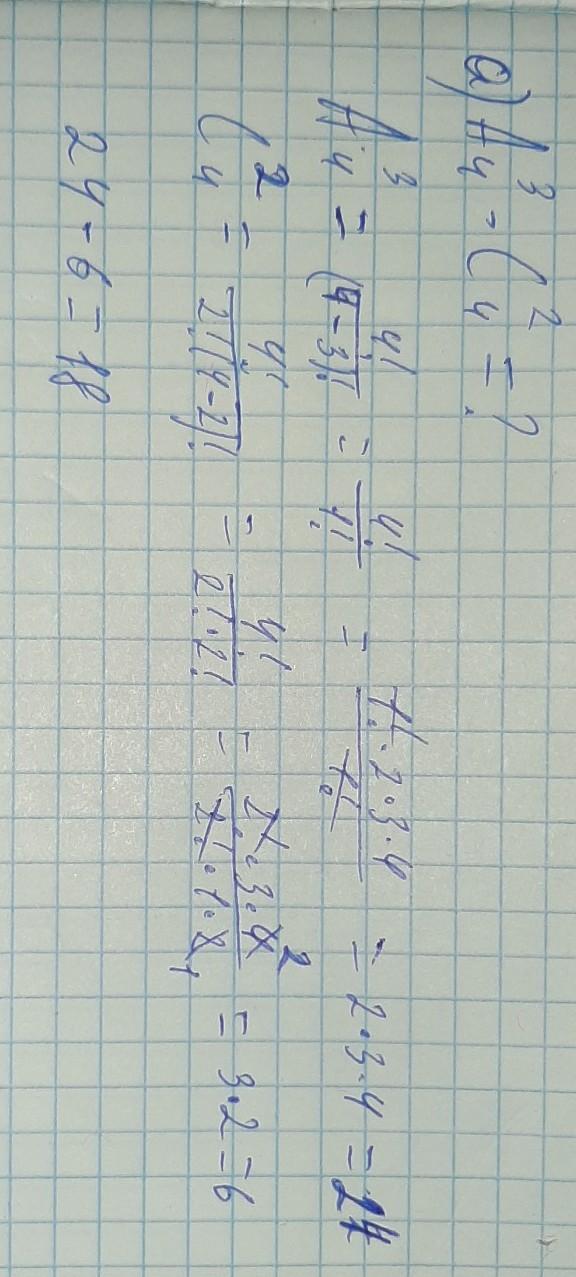 а) A₄³ - C₄² = ?
A₄³ = 4!/(4-3)! = 4!/1! = 1!·2·3·4/1! = 2·3·4 = 24
C₄² = 4!/2!(4-2)! = 4!/2!·2! = 2!·3·4²/2!·1·2₁ = 3·2 = 6
24 - 6 = 18